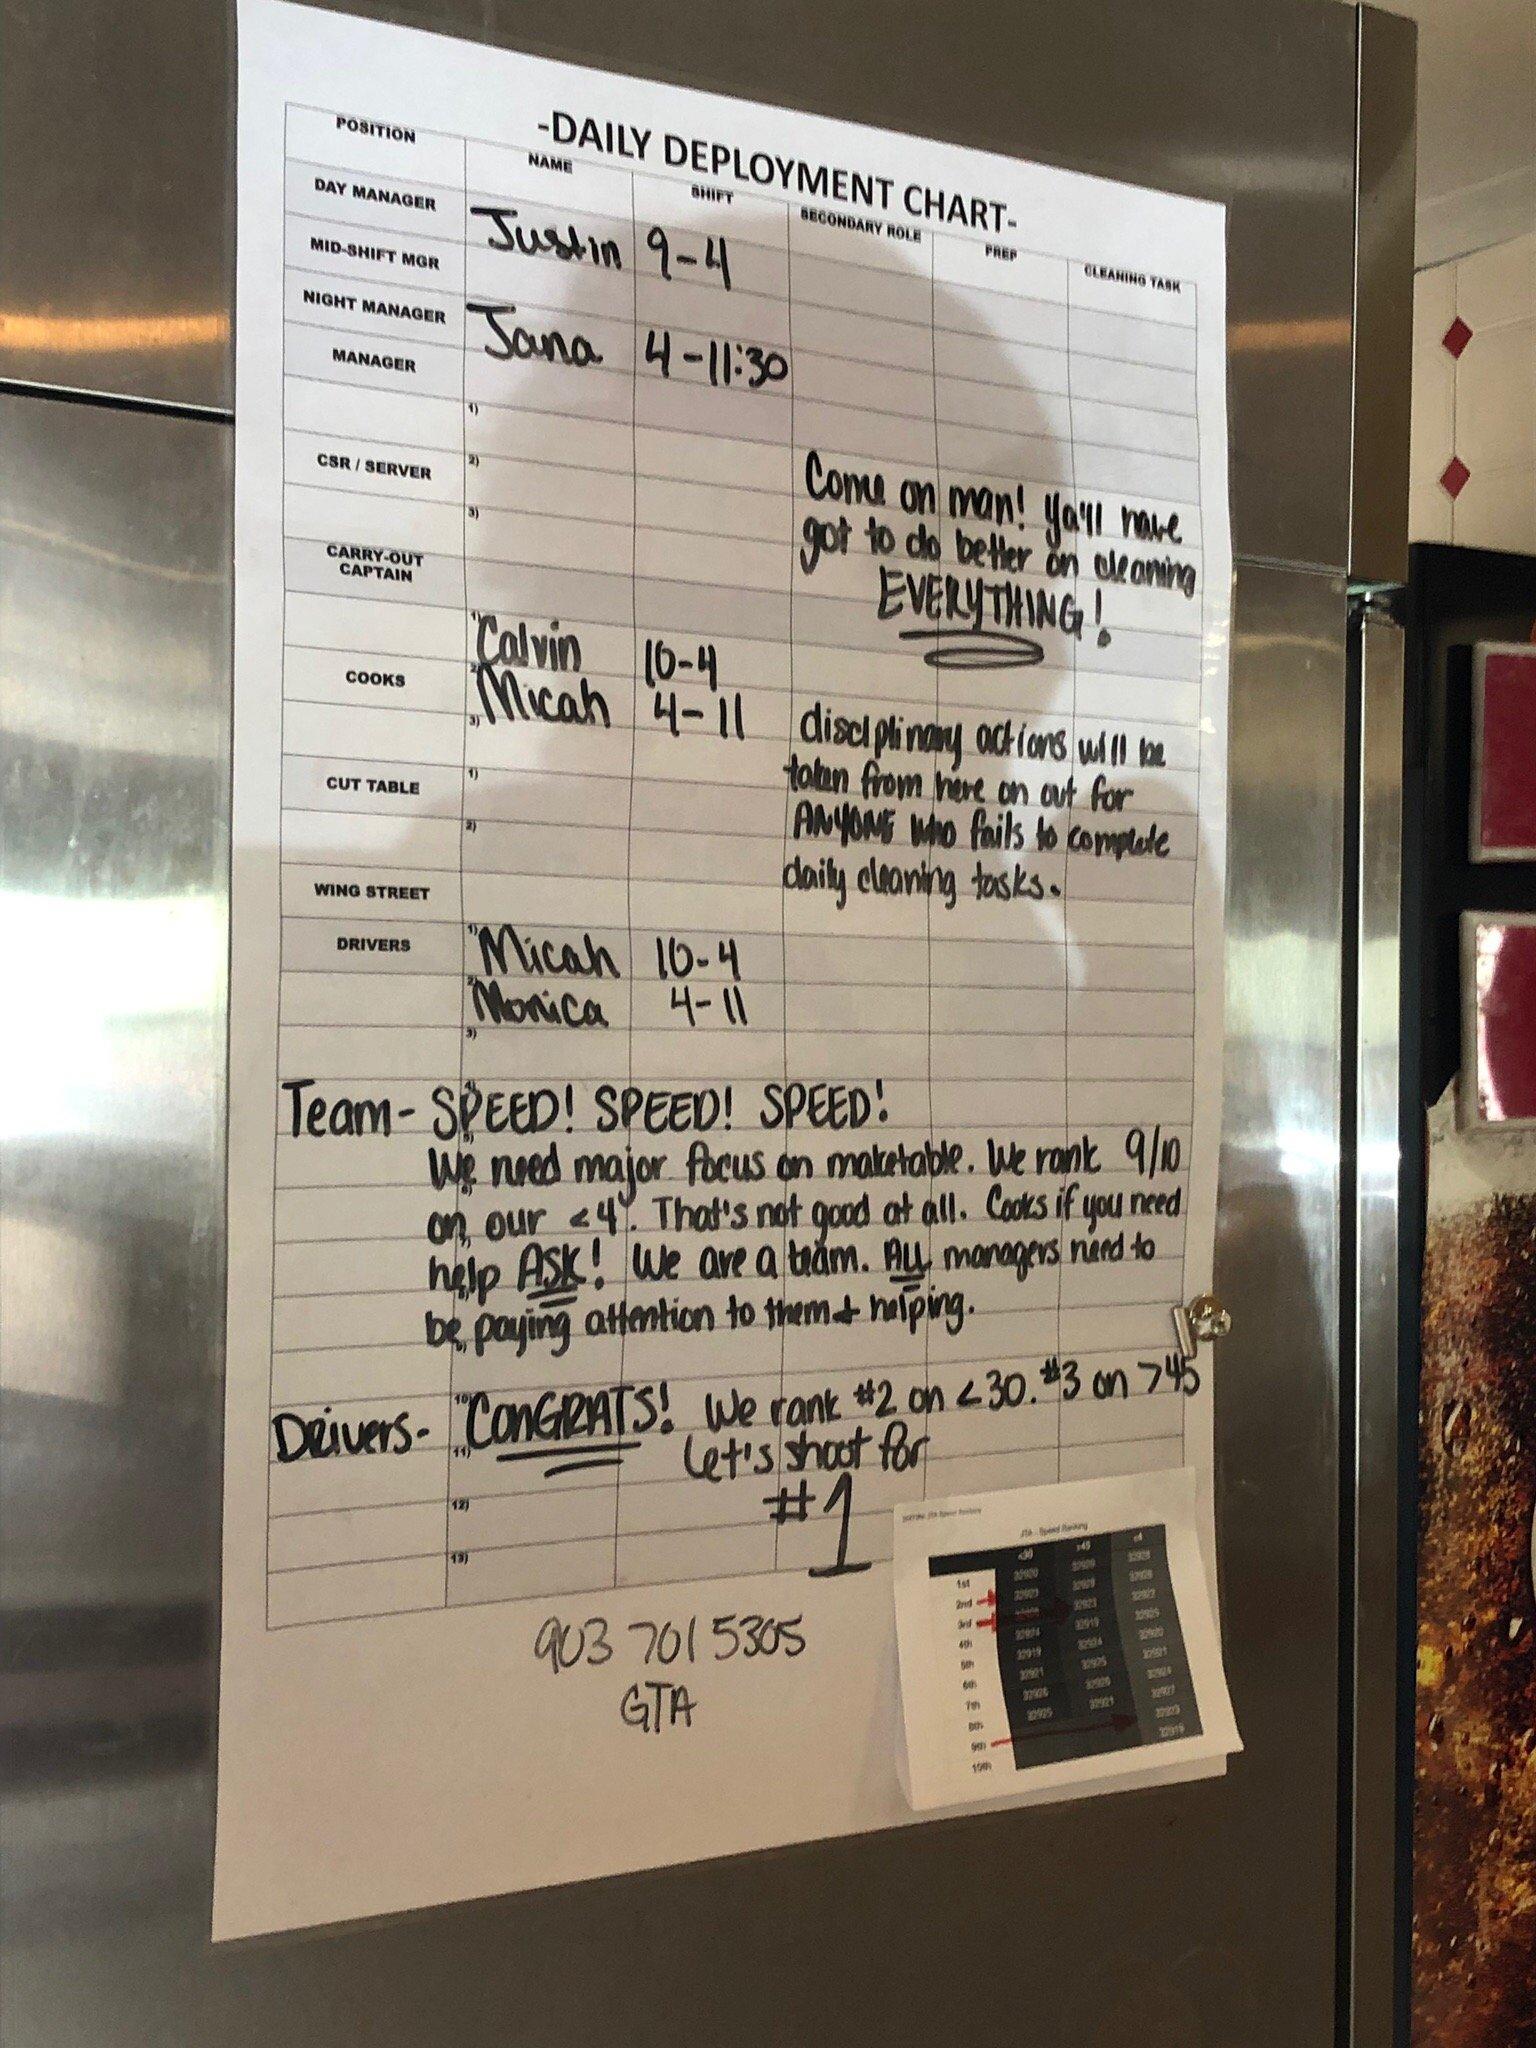 -DAILY DEPLOYMENT CHART-
POSITION NAME SHIFT SECONDARY ROLE PREP CLEANING TASK
DAY MANAGER Justin 9-4
MID-SHIFT MGR
NIGHT MANAGER Jana 4-11:30
MANAGER
1)
CSR / SERVER 2)
3)
Come on man! Ya'll have
got to do better on cleaning
EVERYTHING!
CARRY-OUT
CAPTAIN
1) Calvin 10-4
COOKS 2) Micah 4-11
3)
disciplinary actions will be
taken from here on out for
ANYONE who fails to complete
daily cleaning tasks.
CUT TABLE 1)
2)
WING STREET
DRIVERS 1) Micah 10-4
2) Monica 4-11
3)
Team- SPEED! SPEED! SPEED!
We need major focus on maketable. We rank 9/10
on our <4. That's not good at all. Cooks if you need
help ASK! We are a team. ALL managers need to
be paying attention to them + helping.
10)
Drivers- CONGRATS! We rank #2 on <30. #3 on >45
11)
Let's shoot for
#1
12)
13)
903 701 5305
GTA
JTA - Speed Ranking
<30 >45 <4
1st
2nd
3rd
4th
5th
6th
7th
8th
9th
10th